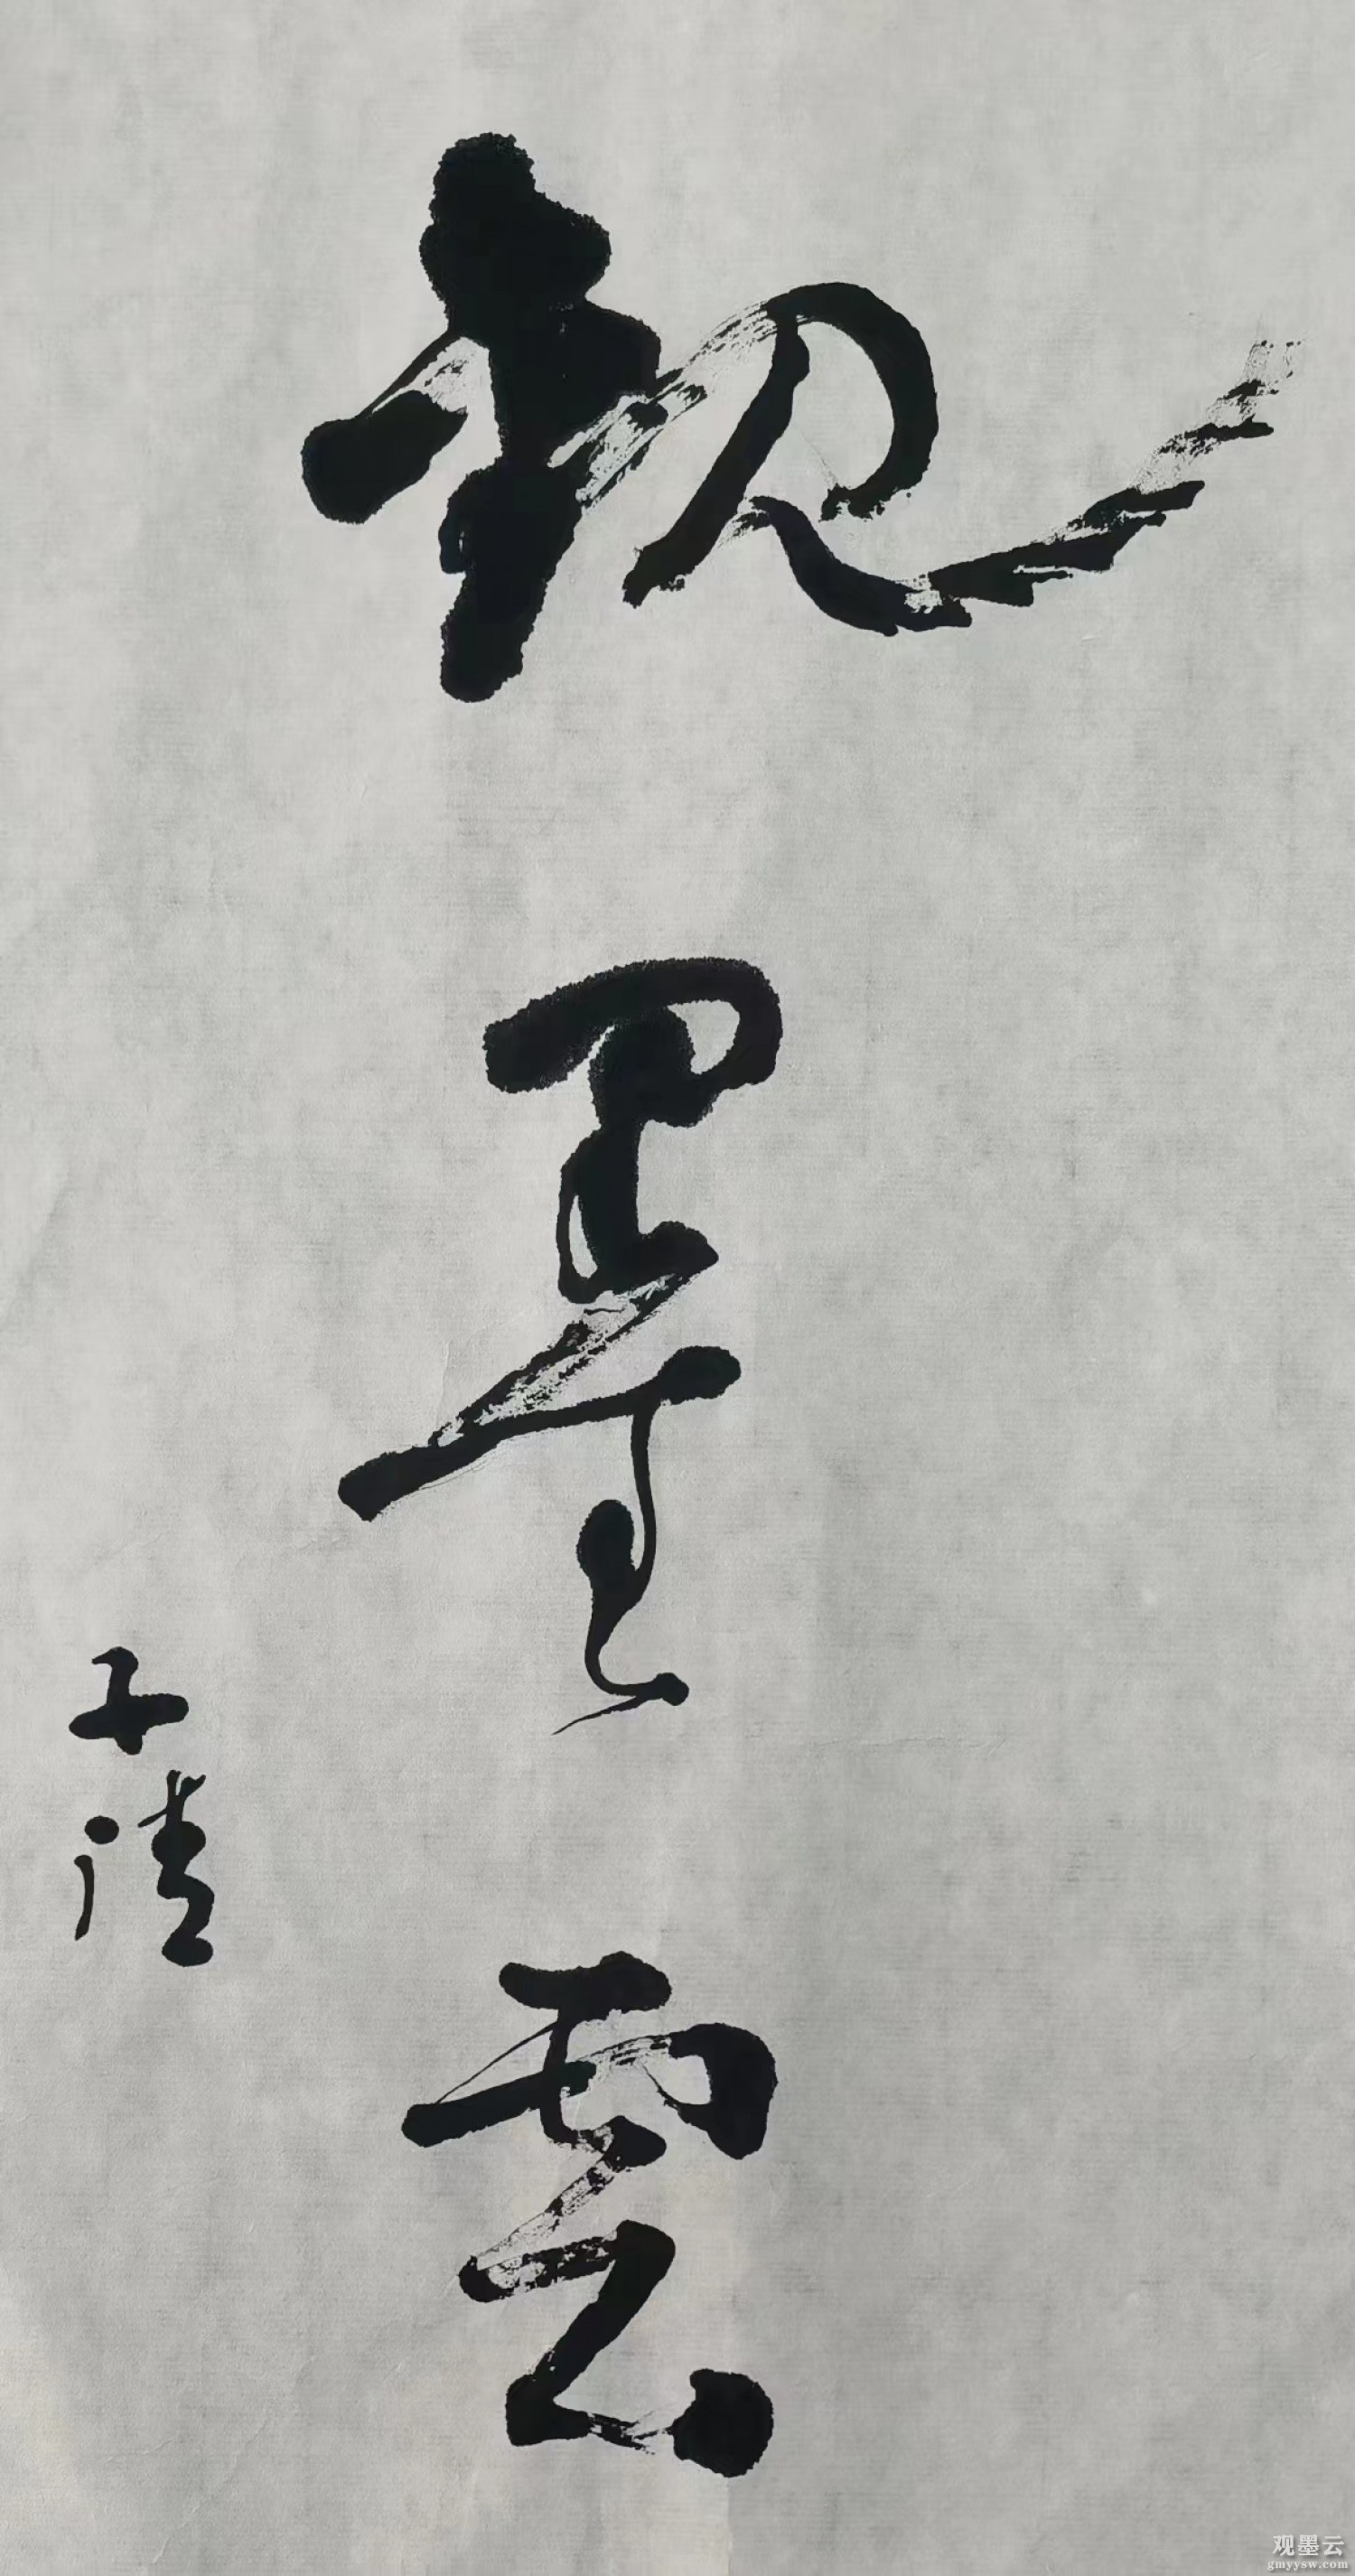 觀墨雲
子清
观墨云
gmyysw.com